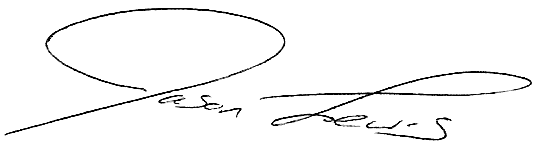 Jason Lewis